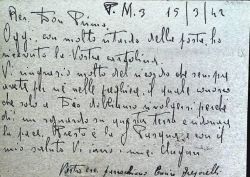 P. M. 3 15/3/42
Rev. Don Primo,
Oggi, con molto ritardo della posta, ho
ricevuto la Vostra cartolina.
Vi ringrazio molto del ricordo che sempre
avete per me nelle preghiere, il quale
che solo a Dio dobbiamo rivolgerci perché
dia uno sguardo su questa terra e ridoni
la pace. Presto è la Pasqua e con il
mio saluto Vi invio i miei auguri